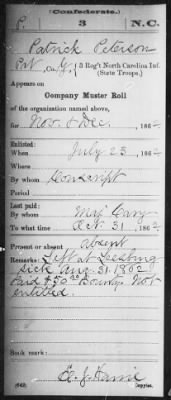 (Confederate.)
P. 3 N.C.
Patrick Peterson
Pvt, Co. G, 3 Reg't North Carolina Inf.
(State Troops.)
Appears on
Company Muster Roll
of the organization named above,
for Nov. & Dec., 186
Enlisted:
When July 25, 1862
Where
By whom Conscript
Period
Last paid:
By whom Maj Cary
To what time Oct. 31, 1862
Present or absent absent
Remarks: Left at Leesburg
sick Aug. 31. 1862
Paid $50.00 bounty. Not
entitled.
Book mark:
(642) Copyist.